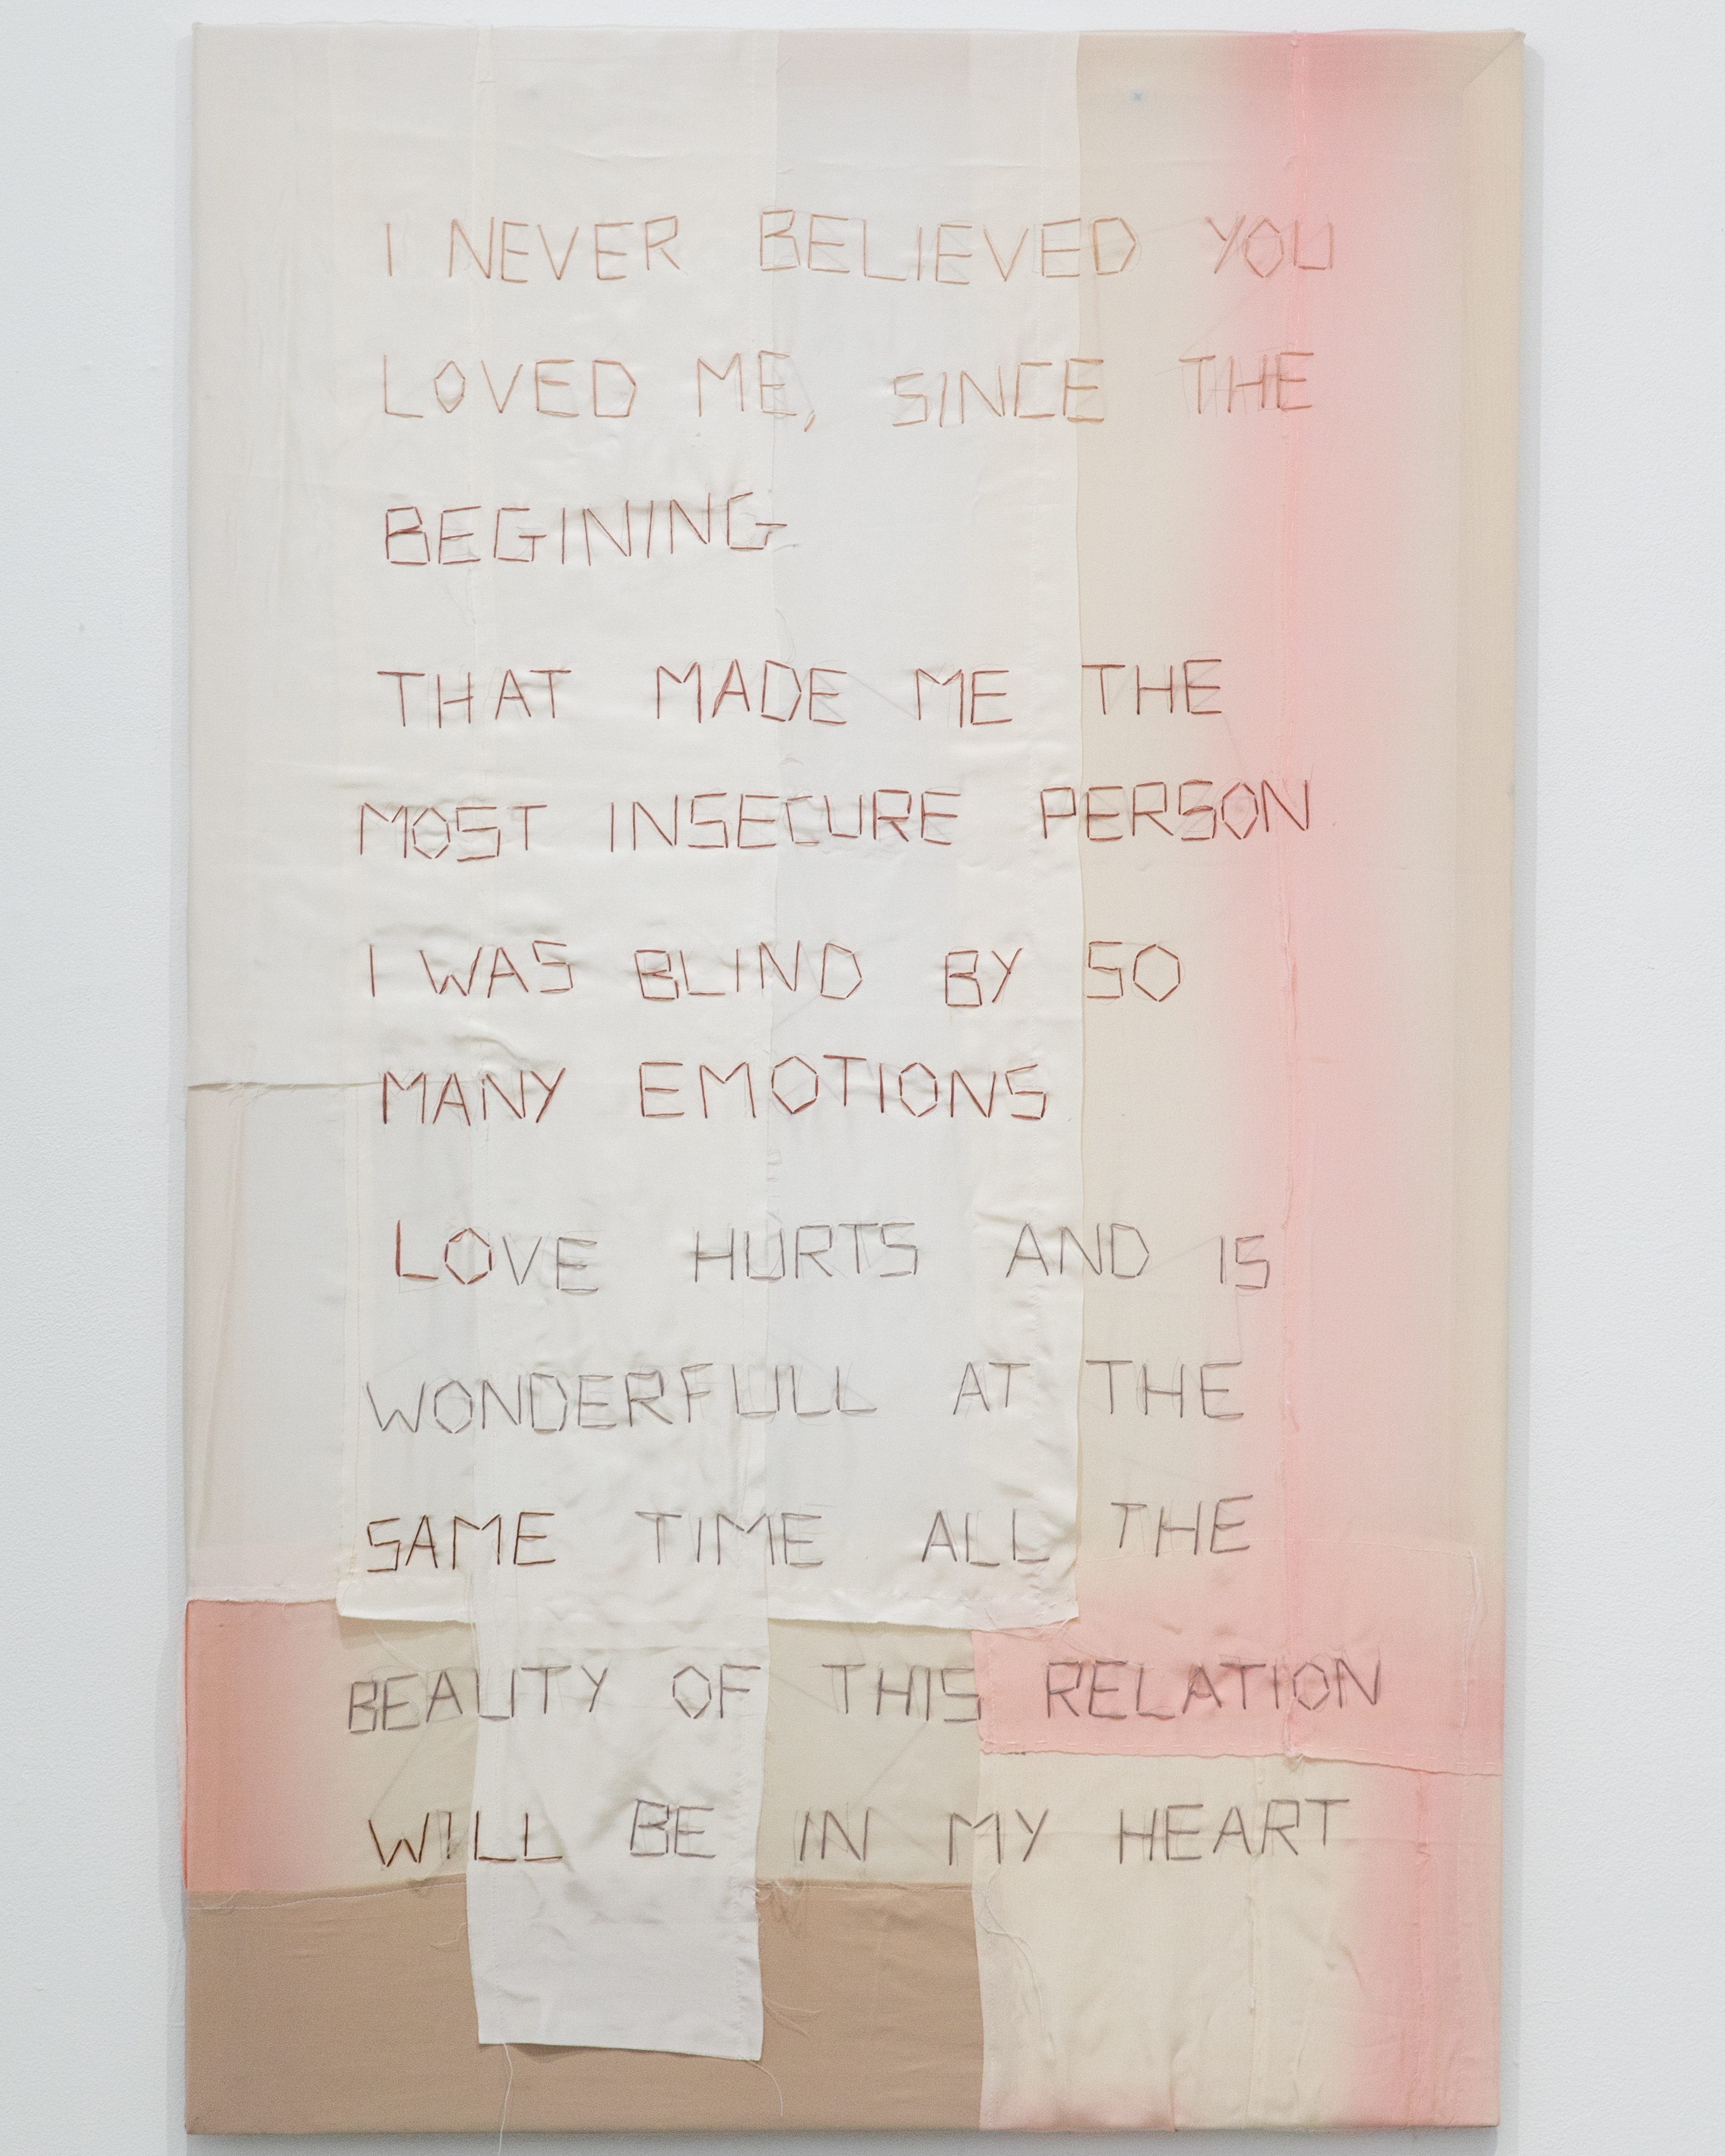 I NEVER BELIEVED YOU
LOVED ME, SINCE THE
BEGINING
THAT MADE ME THE
MOST INSECURE PERSON
I WAS BLIND BY SO
MANY EMOTIONS
LOVE HURTS AND IS
WONDERFULL AT THE
SAME TIME ALL THE
BEAUTY OF THIS RELATION
WILL BE IN MY HEART